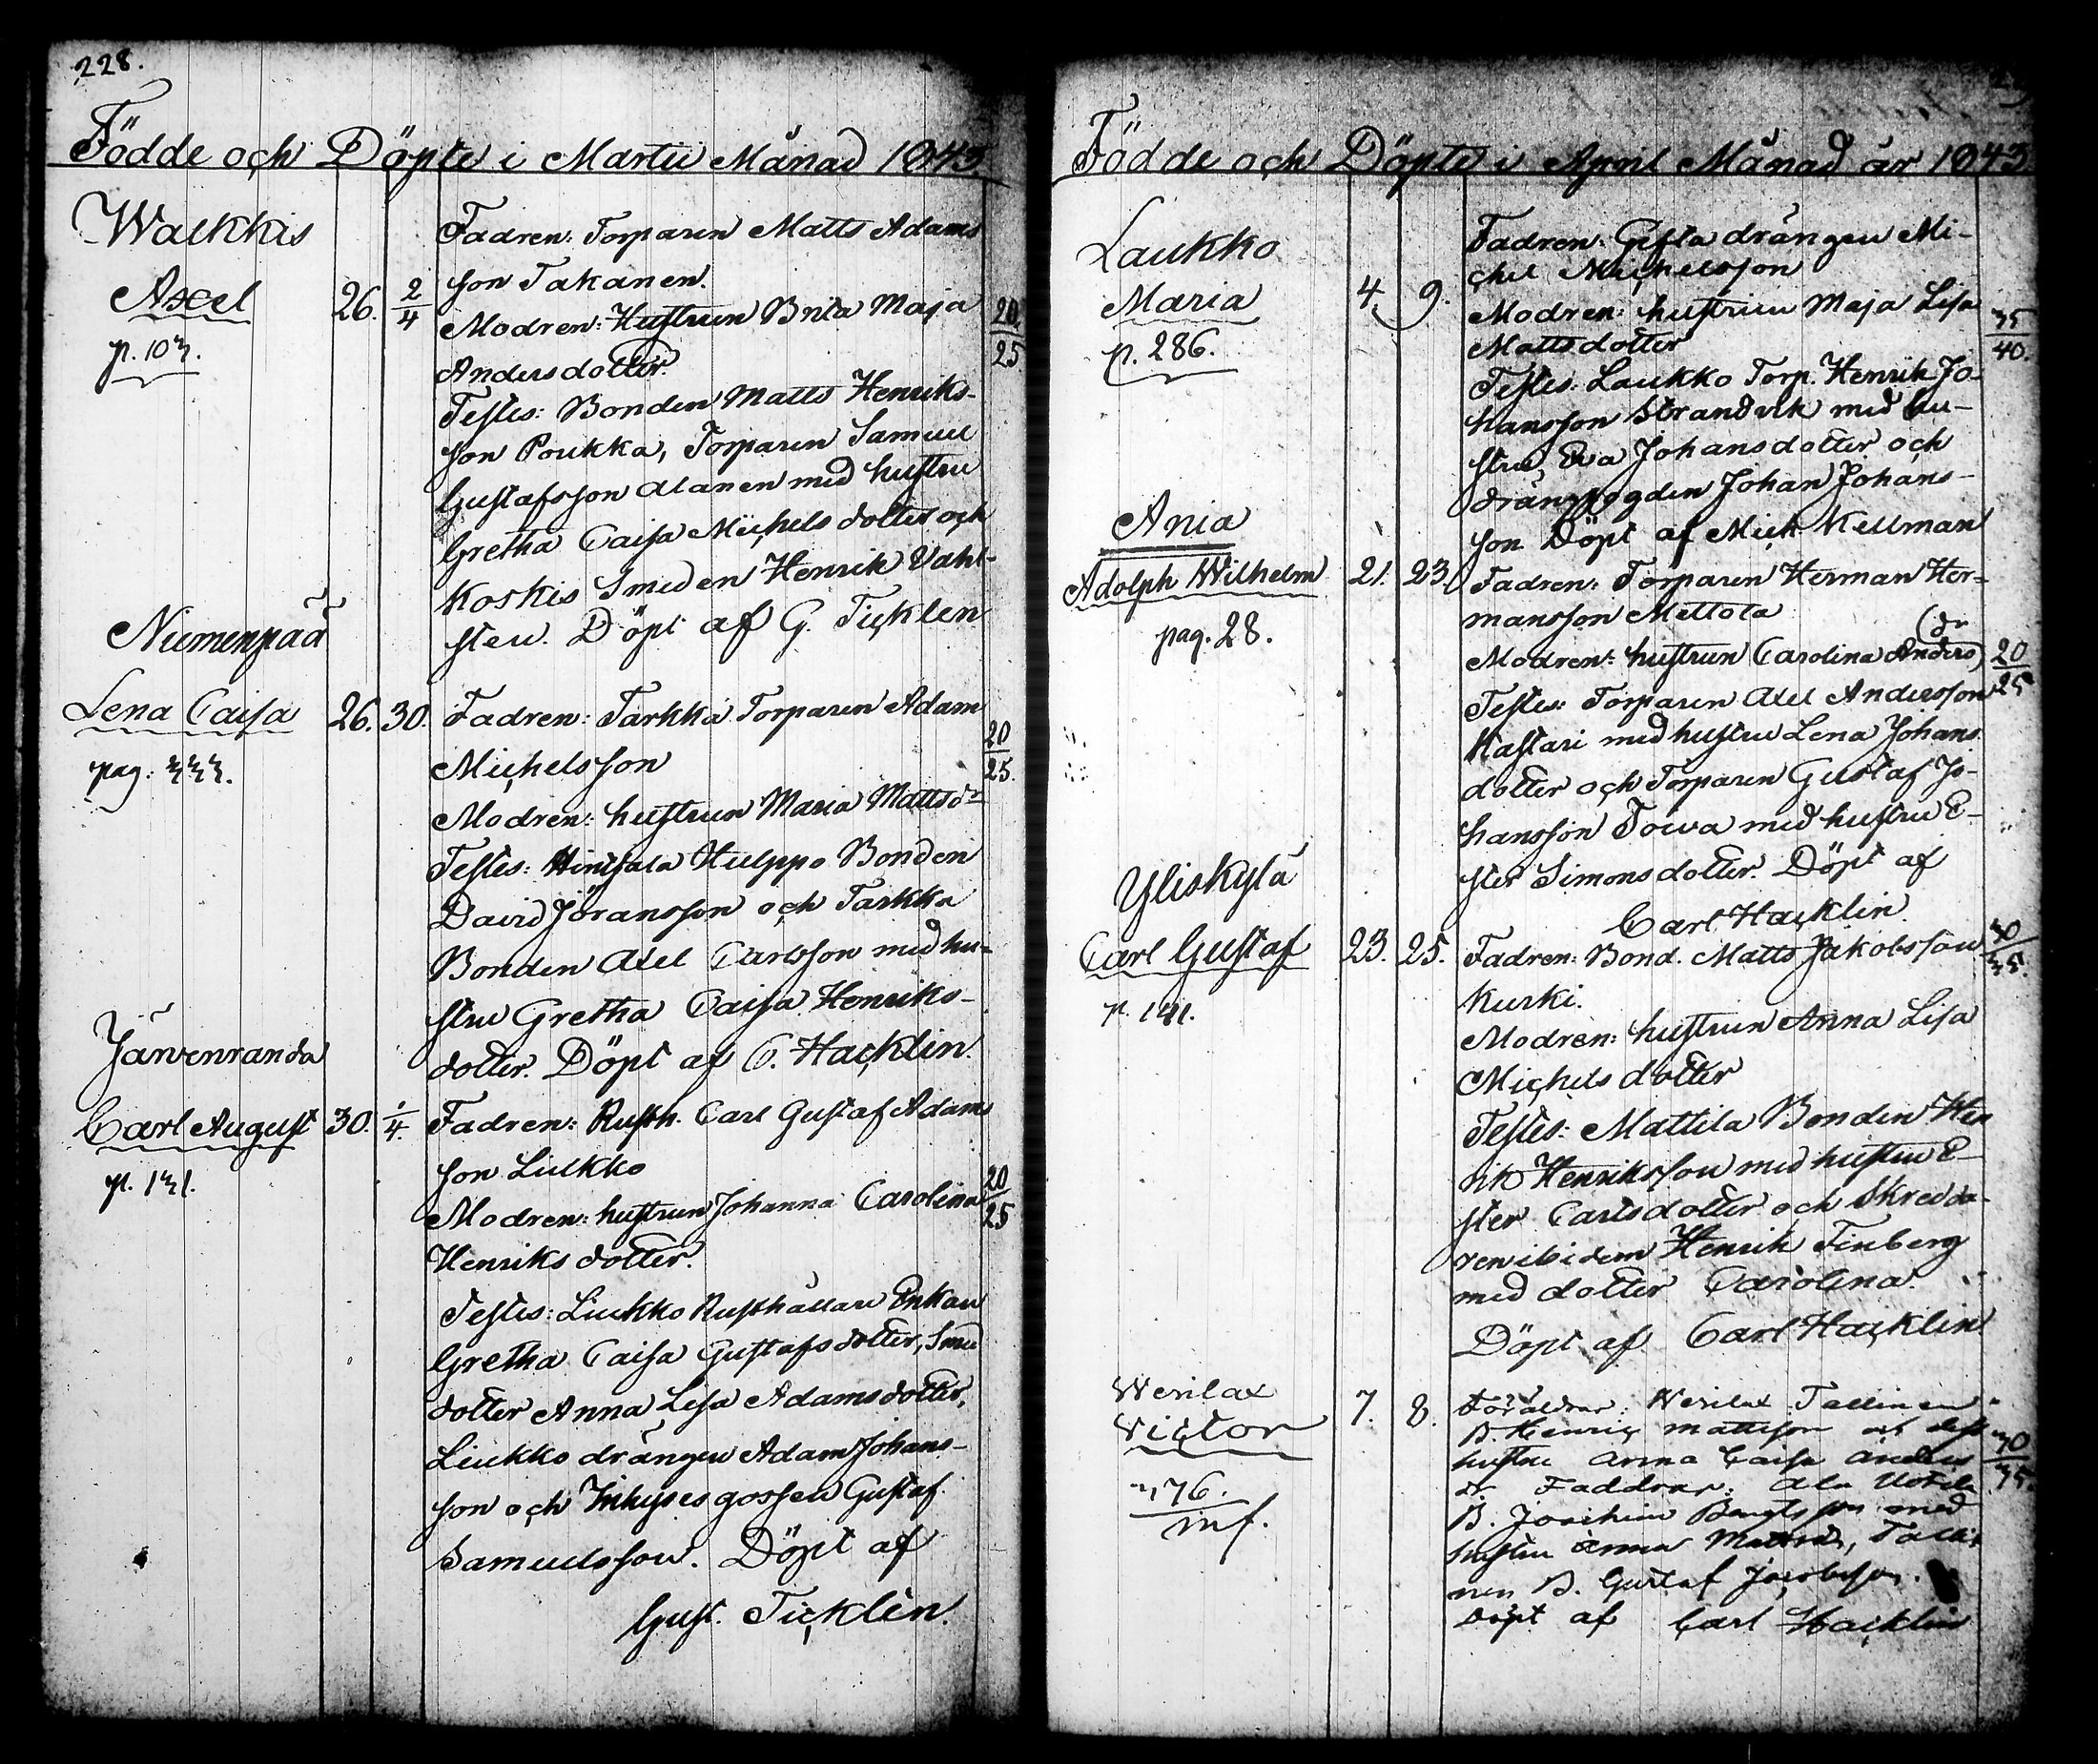 228.
Födde och Döpte i Martii Månad 1843.
Walkkis
Axel 26. 2/4
p. 103.
Fadren: Torparen Matts Adams
son Takanen.
Modren: Hustrun Brita Maja
20/25
Andersdotter.
Testes: Bonden Matts Henriks-
son Poukka, Torparen Samuel
Gustafsson Alanen med hustru
Gretha Caisa Michelsdotter och
Koskis Smeden Henrik Vahl-
sten. Döpt af G. Ticklén
Niemenpää
Lena Caisa 26. 30.
pag. 333.
Fadren: Tarkka Torparen Adam
20/25.
Michelsson
Modren: hustrun Maria Mattsdr
Testes: Hintsala Hulppo Bonden
David Jöransson och Tarkka
Bonden Axel Carlsson med hu-
stru Gretha Caisa Henriks-
dotter. Döpt af C. Hacklin.
Järvenranda
Carl August 30. 1/4.
p. 131.
Fadren: Rusth. Carl Gustaf Adams
son Liukko
Modren: hustrun Johanna Carolina
20/25
Henriksdotter.
Testes: Liukko Rusthållare Enkan
Gretha Caisa Gustafsdotter, Smed
dotter Anna Lisa Adamsdotter,
Liukko drängen Adam Johans-
son och Inhyses gossen Gustaf
Samuelsson. Döpt af
Gust. Ticklén.
Födde och Döpte i April Månad år 1843.
Laukko
Maria 4. 9.
p. 286.
Fadren: Gifta drängen Mi-
chel Michelsson
Modren: hustrun Maja Lisa
35/40.
Mattsdotter
Testes: Laukko Torp. Henrik Jo-
hansson Strandvik med hu-
stru Eva Johansdotter och
drängfogden Johan Johans-
son Döpt af Mich Kellman
Ania
Adolph Wilhelm 21. 23.
pag. 28.
Fadren: Torparen Herman Her-
mansson Mettola
Modren: hustrun Carolina Anders
(dr
20/25
Testes: Torparen Axel Andersson
Hastari med hustru Lena Johans
dotter och Torparen Gustaf Jo-
hansson Towa med hustru E-
ster Simonsdotter. Döpt af
Carl Hacklin.
Yliskylä
Carl Gustaf 23. 25.
p. 141.
Fadren: Bond. Matts Jakobsson
30/35.
Kurki.
Modren: hustrun Anna Lisa
Michelsdotter
Testes: Mattila Bonden Hen
rik Henriksson med hustru E-
ster Carlsdotter och Skredda-
ren ibidem Henrik Finberg
med dotter Carolina
Döpt af Carl Hacklin
Werilax
Victor 7. 8.
376.
inf.
Föräldrar: Werilax Tallinen
B. Henric Mattsson och dess
30/35.
hustru Anna Caisa Anders
dr Faddrar: Ala Uotila
B. Joachim Bengtsson med
hustru Anna Mattsdr, Talli-
nen B. Gustaf Jacobsson.
Döpt af Carl Hacklin